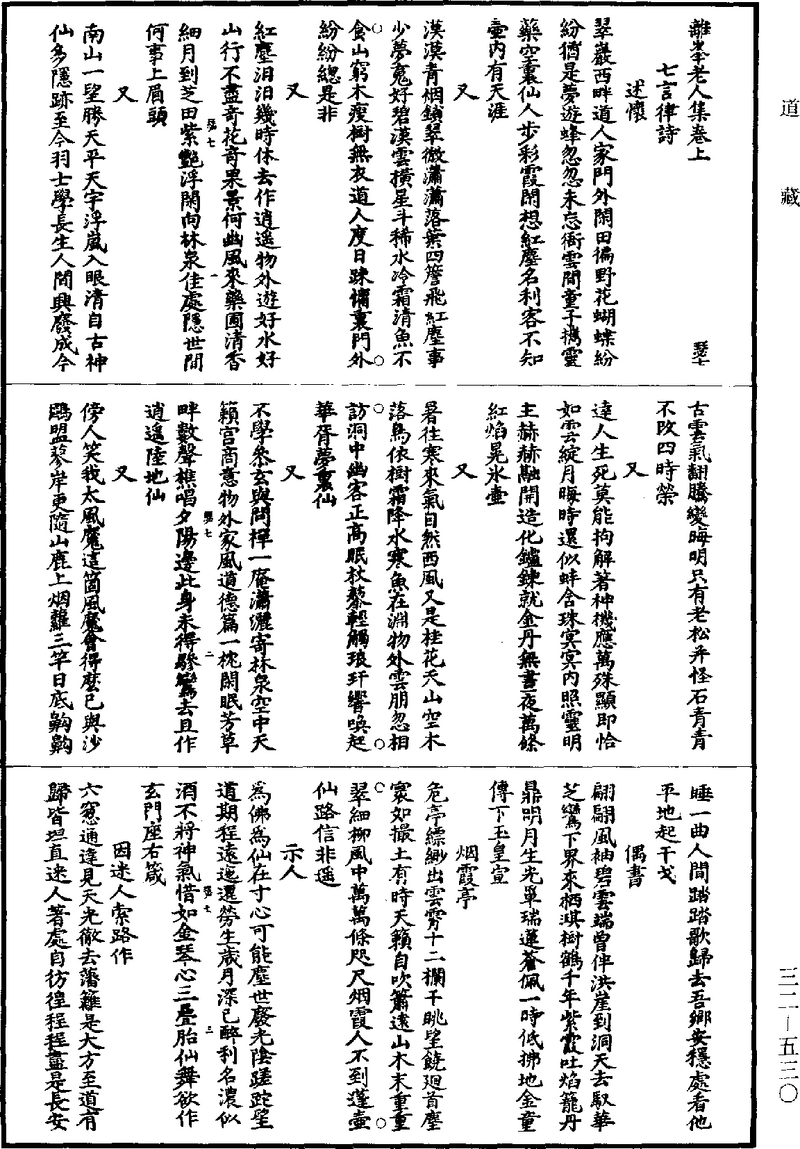 道藏
離峯老人集卷上
瑟七
七言律詩
述懷
翠巖西畔道人家門外閑田徧野花蝴蝶紛
紛猶是夢遊蜂忽忽未忘衙雲間童子携靈
藥空裏仙人步彩霞閑想紅塵名利客不知
壺內有天涯
又
漠漠青烟鎖翠微瀟瀟落葉四簷飛紅塵事
少夢䰟好碧漢雲橫星斗稀水冷霜清魚不
食山窮木瘦樹無衣道人度日踈慵裏門外
紛紛總是非
又
紅塵汩汩幾時休去作逍遥物外遊好水好
山行不盡奇花奇果景何幽風來藥圃清香
細月到芝田紫艷浮閑向林泉佳處隱世間
何事上眉頭
又
南山一望勝天平天宇浮嵐入眼清自古神
仙多隱跡至今羽士學長生人間興廢成今
古雲氣翻騰變晦明只有老松并怪石青青
不改四時榮
又
達人生死莫能拘解著神機應萬殊顯即恰
如雲綻月晦時還似蚌含珠冥冥內照靈明
主赫赫融開造化鑪鍊就金丹無晝夜萬條
紅焰晃氷壺
又
暑往寒來氣自然西風又是桂花天山空木
落鳥依樹霜降水寒魚在淵物外雲朋忽相
訪洞中幽客正高眠杖藜輕觸琅玕響喚起
華胥夢裏仙
又
不學參玄與問禪一庵瀟灑寄林泉空中天
籟宮商意物外家風道德篇一枕閑眠芳草
畔數聲樵唱夕陽邊此身未得驂鸞去且作
逍遥陸地仙
又
傍人笑我太風魔這箇風魔會得麽已與沙
鷗盟蓼岸更隨山鹿上烟蘿三竿日底齁齁
睡一曲人間踏踏歌歸去吾鄉安穩處看他
平地起干戈
偶書
翩翩風袖碧雲端曾伴洪崖到洞天去馭華
芝鸞下界來栖琪樹鶴千年紫霞吐焰籠丹
鼎明月生光單瑞蓮蒼佩一時低拂地金童
傳下玉皇宣
烟霞亭
危亭縹緲出雲霄十二欄干眺望饒廻首塵
寰如撮土有時天籟自吹簫遠山木末重重
翠細柳風中萬萬條咫尺烟霞人不到蓬壺
仙路信非遥
示人
爲佛爲仙在寸心可能塵世廢光陰蹉跎望
道期程遠迤邐勞生歲月深已醉利名濃似
酒不將神氣惜如金琴心三疊胎仙舞欲作
玄門座右箴
因迷人索路作
六窓通達見天光徹去藩籬是大方至道有
歸皆坦直迷人著處自彷徨程程盡是長安
瑟七 一
瑟七 二
瑟七 三
三二—五三〇